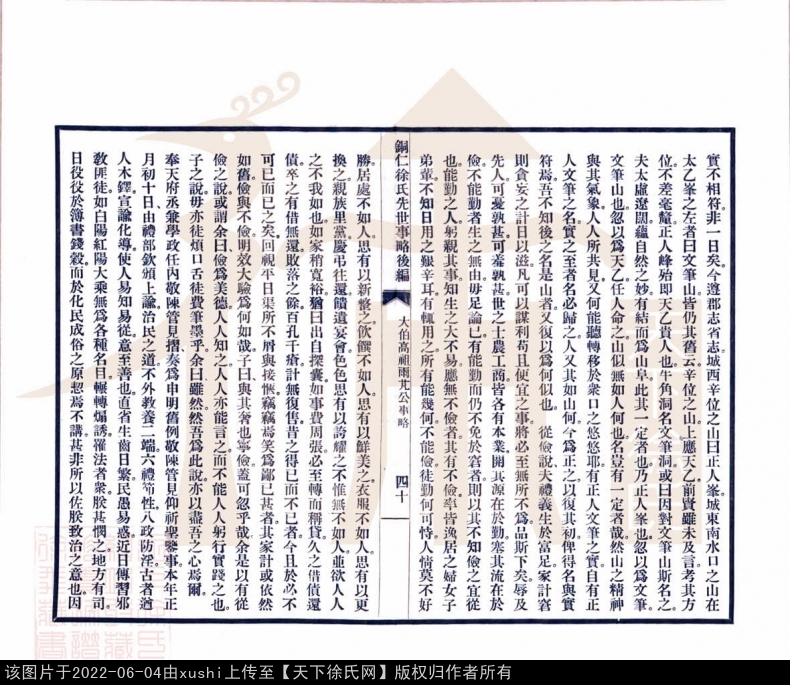 實不相符非一日矣今遵郡志省志城西辛位之山曰正人峯城東南水口之山在
太乙峯之左者曰文筆山皆仍其舊云辛位之山上應天乙前賢雖未及言考其方
位不差毫釐正人峰始即天乙貴人也牛角洞名文筆洞或曰因對文筆山斯名之
夫太虛遼闊蘊自然之妙有結而為山阜此其一定者也乃正人峯也忽以為文筆
文筆山也忽以為天乙任人命之山似無如人何也名豈有一定者哉然山之精神
與其氣象人人所共見又何能聽轉移於衆口之悠悠耶有正人文筆之實自有正
人文筆之名實之至者名必歸之人又其如山何今為正之以復其初俾得名與實
符焉吾不知後之名是山者又復以為何似也 從儉說夫禮義生於富足家計窘
則貪妄之計日以滋凡可以謀利苟且便安之事將必至無所不為品斯下矣辱及
先人可憂孰甚可羞孰甚世之士農工商皆各有本業開其源在於勤塞其流在於
儉不能勤者生之無由毋足論已有能勤而仍不免於窘者則以其不知儉之宜從
也能勤之人躬親其事知生之大不易應無不儉者其有不儉率皆逸居之婦女子
弟輩不知日用之艱辛耳有輒用之所有能幾何不能儉徒勤何可恃人情莫不好
銅仁徐氏先世事略後編 大伯高祖雨芃公事略 四十
勝居處不如人思有以新整之飲饌不如人思有以鮮美之衣服不如人思有以更
換之親族里黨慶弔往還饋遺宴會色色思有以誇耀之不惟無不如人並欲人人
之不我如也如家稍寬裕猶曰出自探囊如事費周張必至轉而稱貸久之借債還
債卒之有借無還敗落之餘百孔千瘡計無復售昔之得已而不已者今且於必不
可已而已之矣回視平日渠所不屑與接惬竊竊焉笑為鄙已甚者其家計或依然
如舊儉與不儉明效大驗為何如哉子曰與其奢也寧儉蓋可忽乎哉余是以有從
儉之說或謂余曰儉為美德人人知之人人亦能言之而不能人人躬行實踐之也
子之說毋亦徒煩口舌徒費筆墨乎余曰雖然然吾為此說亦以盡吾之心焉爾
奉天府丞兼學政任內敬陳管見摺奏為申明舊例敬陳管見仰祈聖鑒事本年正
月初十日由禮部欽頒上諭治民之道不外教養二端六禮節性八政防淫古者遒
人木鐸宣諭化導使人易知易從意至善也直省生齒日繁民愚易惑近日傳習邪
教匪徒如白陽紅陽大乘無為各種名目輾轉煽誘罹法者衆朕甚憫之地方有司
日役役於簿書錢穀而於化民成俗之原恝焉不講甚非所以佐朕致治之意也因
该图片于2022-06-04由xushi上传至【天下徐氏网】版权归作者所有